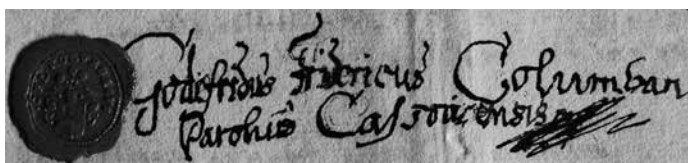 Godefridus Fridericus Columban
Parohus Cassoviensis